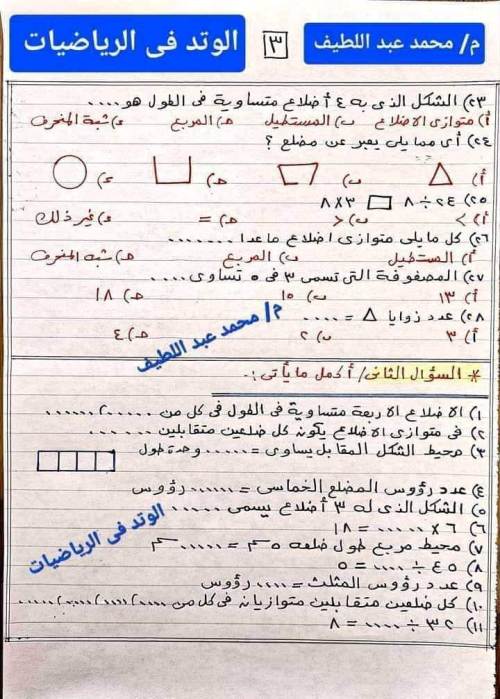 م/ محمد عبد اللطيف ٣ الوتد فى الرياضيات
٢٣) الشكل الذى به ٤ أضلاع متساوية فى الطول هو ....
أ) متوازى الاضلاع ب) المستطيل حـ) المربع ء) شبة المنحرف
٢٤) أى مما يلى يعبر عن مضلع ؟
أ) ب) حـ) ء)
٢٥) ٢٤ ÷ ٨ ٣ × ٨
أ) > ب) < حـ) = ء) غير ذلك
٢٦) كل ما يلى متوازى اضلاع ماعدا .......
أ) المستطيل ب) المربع حـ) شبه المنحرف
٢٧) المصفوفة التى تسمى ٣ فى ٥ تساوى ....
أ) ١٣ ب) ١٥ حـ) ١٨
٢٨) عدد زوايا = ....
أ) ٣ ب) ٢ حـ) ٤
م/ محمد عبد اللطيف
* السؤال الثانى/ أكمل ما يأتى :-
١) الاضلاع الاربعة متساوية فى الطول فى كل من ......، ......
٢) فى متوازى الاضلاع يكونه كل ضلعين متقابلين ......
٣) محيط الشكل المقابل يساوى = ..... وحدة طول
٤) عدد رؤوس المضلع الخماسى = ...... رؤوس
٥) الشكل الذى له ٣ أضلاع يسمى .....
٦) ٦ × ...... = ١٨
٧) محيط مربع طول ضلعه ٥ سم = ..... سم
٨) ٤٥ ÷ .... = ٥
٩) عدد رؤوس المثلث = .... رؤوس
١٠) كل ضلعين متقابلين متوازيانه فى كل من ....، ....، ....، ....
١١) ٣٢ ÷ .... = ٨
الوتد فى الرياضيات